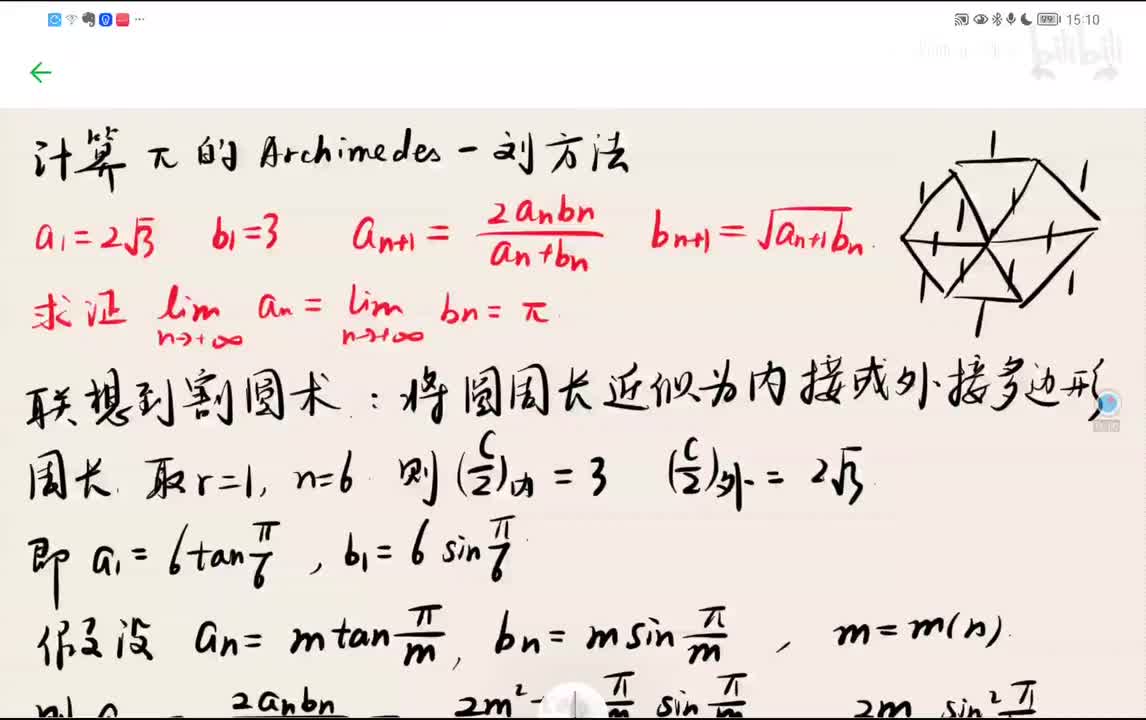 15:10
bilibili
计算π的Archimedes-刘方法
a₁=2√3 b₁=3 aₙ₊₁=2aₙbₙ/(aₙ+bₙ) bₙ₊₁=√(aₙ₊₁bₙ).
求证 lim_{n→+∞} aₙ = lim_{n→+∞} bₙ = π
联想到割圆术:将圆周长近似为内接或外接多边形
周长.取r=1, n=6.则(C/2)内=3 (C/2)外=2√3
即 a₁=6tan π/6, b₁=6 sin π/6.
假设 aₙ=mtan π/m, bₙ=msin π/m, m=m(n).
则 2aₙbₙ = 2m² π/m sin π/m 2m sin² π
1 1 1 1 1 1 1 1 1 1 1 1